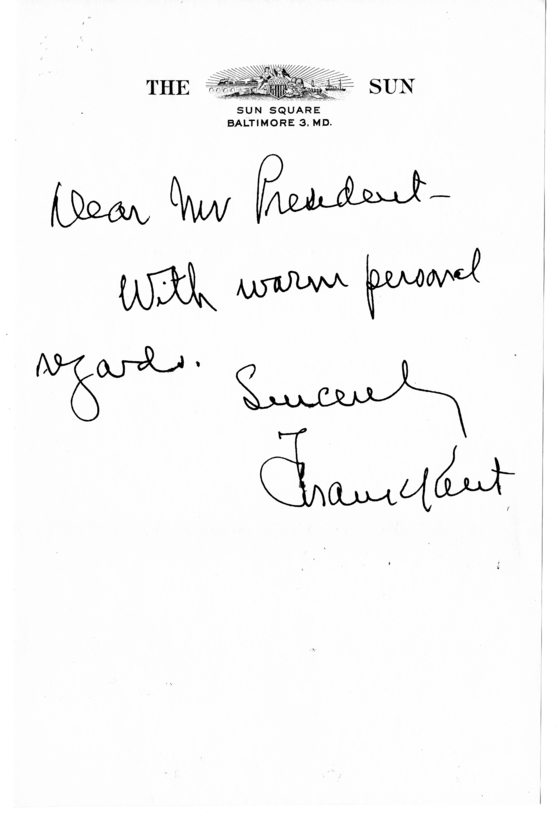 THE SUN
SUN SQUARE
BALTIMORE 3, MD.
Dear Mr President-
With warm personal
regards.
Sincerely
Frank Kent